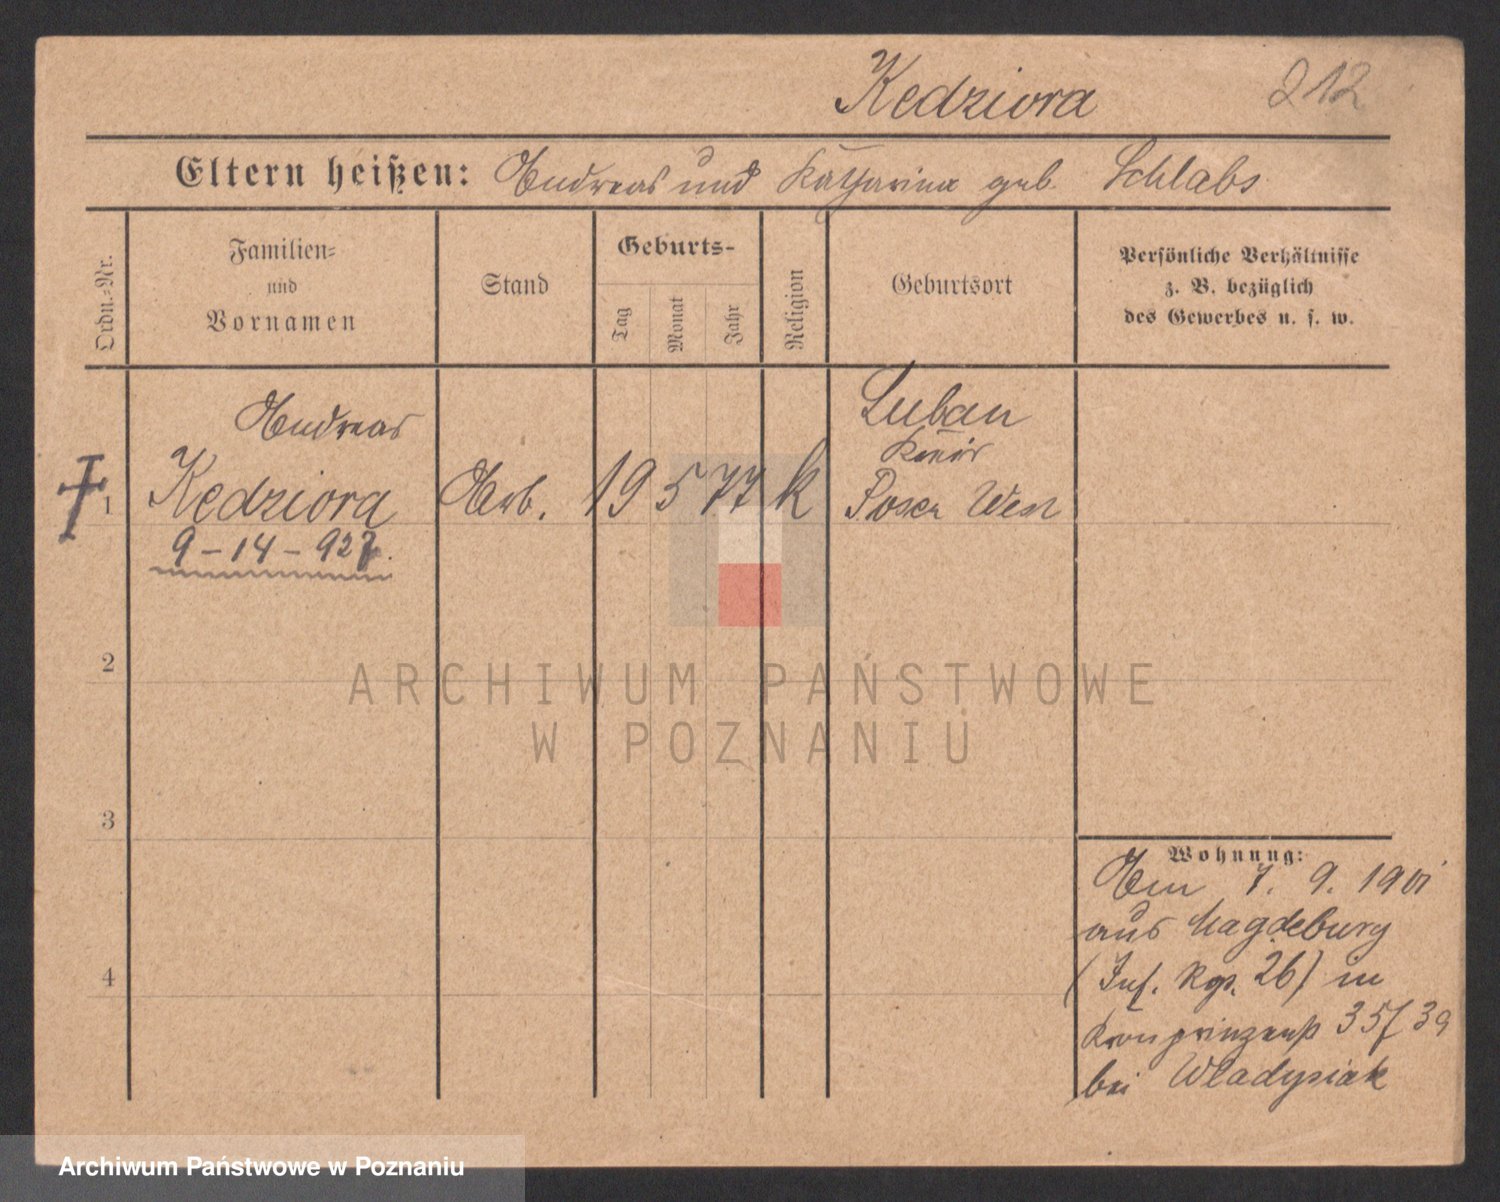 Kedziora 212
Eltern heißen: Andreas und Katharina geb. Schlabs
Ordn.-Nr.
Familien-
und
Vornamen
Stand
Geburts-
Tag
Monat
Jahr
Religion
Geburtsort
Persönliche Verhältnisse
z. B. bezüglich
des Gewerbes u. s. w.
Andreas
1 Kedziora Arb. 19 5 77 k
9-14-927.
Luban
Kreis
Posen West
2
3
4
Wohnung:
Am 7. 9. 1901
aus Magdeburg
(Inf. Rgt. 26) in
Kronprinzenstr 35/39
bei Wladysiak
ARCHIWUM PAŃSTWOWE
W POZNANIU
Archiwum Państwowe w Poznaniu